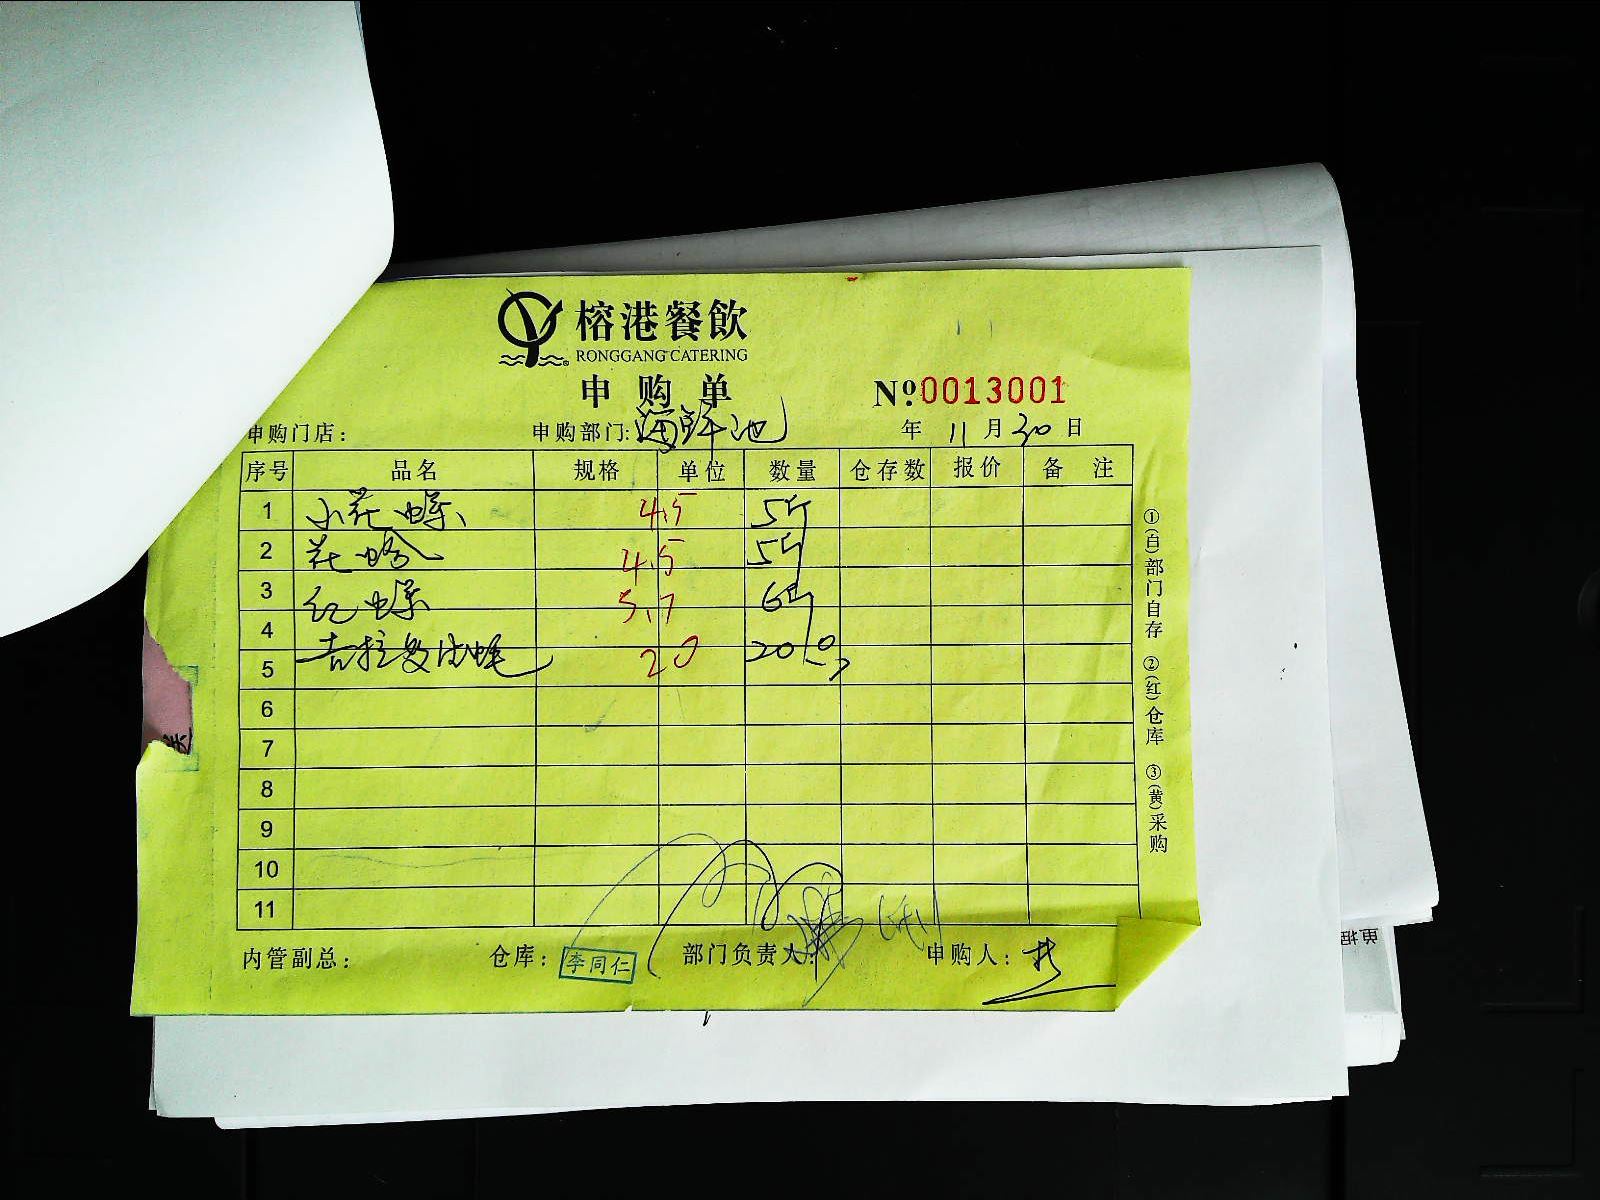 榕港餐飲
RONGGANG CATERING
申购单
№0013001
申购门店: 申购部门:海鲜池 年 11月30日
序号 品名 规格 单位 数量 仓存数 报价 备注
1 小花螺 4.5 5斤
2 花蛤 4.5 5斤
3 红螺 5.7 6斤
4 吉拉多生蚝 20 20只
5
6
7
8
9
10
11
①(白)部门自存 ②(红)仓库 ③(黄)采购
内管副总: 仓库: 李同仁 部门负责人: 申购人:
单据